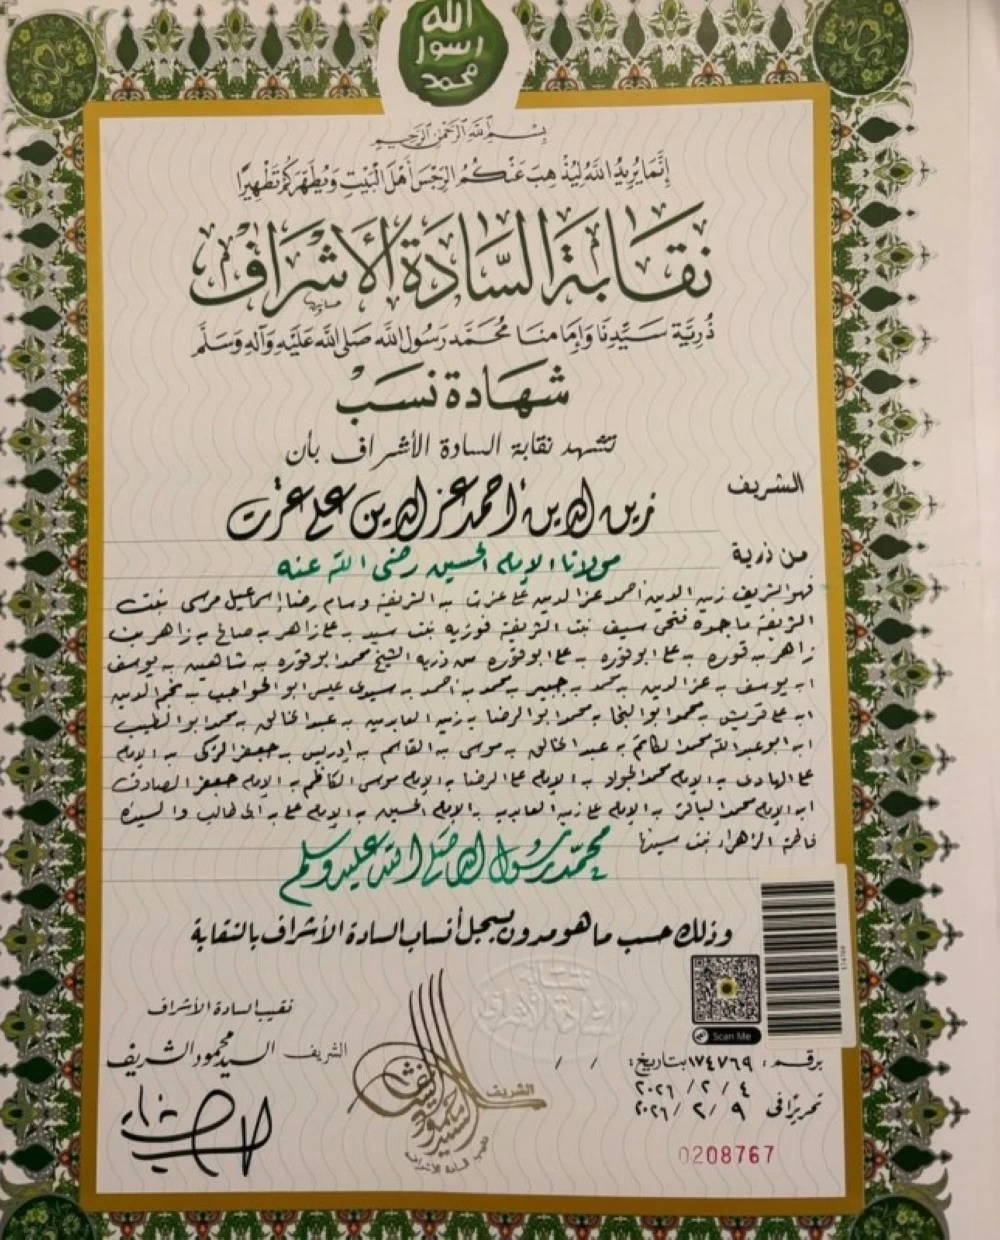 الله
رسول
محمد
بسم الله الرحمن الرحيم
إنما يريد الله ليذهب عنكم الرجس أهل البيت ويطهركم تطهيرا
نقابة السادة الأشراف
ذرية سيدنا وإمامنا محمد رسول الله صلى الله عليه وآله وسلم
شهادة نسب
تشهد نقابة السادة الأشراف بأن
الشريف زين الدين أحمد عز الدين على عزت
من ذرية مولانا الإمام الحسين رضى الله عنه
فهو الشريف زين الدين أحمد عز الدين على عزت بن الشريفة وسام رضا إسماعيل مرسى بنت
الشريفة ماجدة فتحى سيف بنت الشريفة فوزية بنت سيد بن على زاهر بن صالح بن زاهر بن
زاهر بن قورة بن على ابوقورة بن على ابوقورة من ذرية الشيخ محمد ابوقورة بن شاهين بن يوسف
ابن يوسف بن عز الدين بن محمد بن جبير بن محمد بن أحمد بن سيدى عيسى ابو الحواجب بن نجم الدين
ابن على قريش بن محمد ابو النجا بن محمد ابو الرضا بن زين العابدين بن عبد الخالق بن محمد ابو الطيب
ابن ابو عبد الله محمد الكاتم بن عبد الخالق بن موسى بن القاسم بن إدريس بن جعفر الزكى بن الإمام
على الهادى بن الإمام محمد الجواد بن الإمام على الرضا بن الإمام موسى الكاظم بن الإمام جعفر الصادق
ابن الإمام محمد الباقر بن الإمام على زين العابدين بن الإمام الحسين بن الإمام على بن ابى طالب والسيدة
فاطمة الزهراء بنت سيدنا
محمد رسول الله صلى الله عليه وسلم
وذلك حسب ما هو مدون بسجل أنساب السادة الأشراف بالنقابة
Scan Me
نقابة
السادة الأشراف
برقم: ١٧٤٧٦٩ بتاريخ: / /
٢٠٢٦ / ٢ / ٤
تحريرًا فى ٢٠٢٦ / ٢ / ٩
0208767
نقيب السادة الأشراف
الشريف السيد محمود الشريف
الشريف
السيد محمود الشريف
نقيب السادة الأشراف